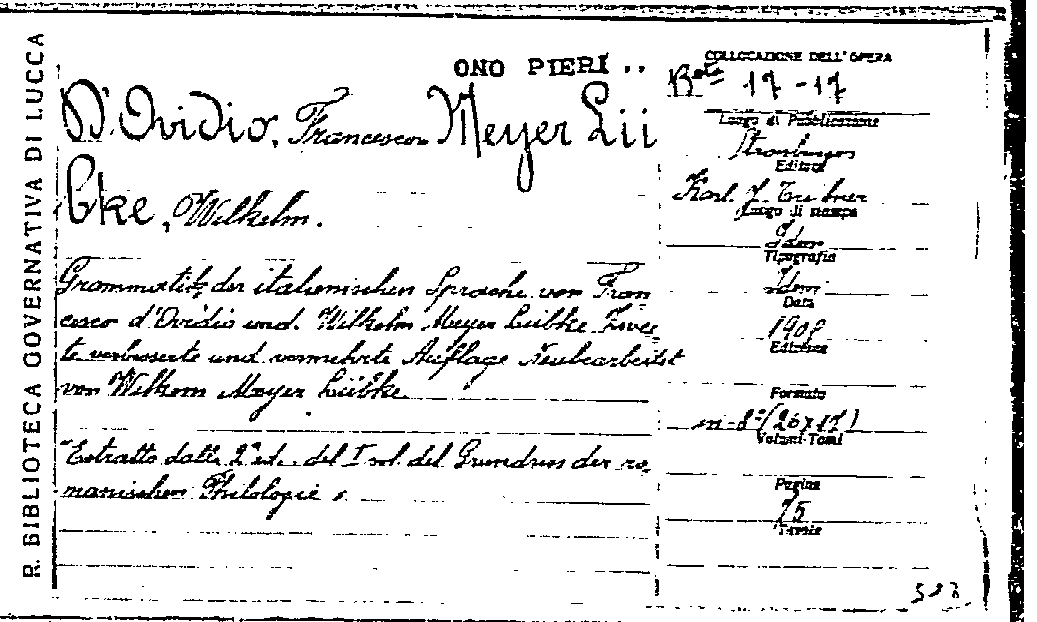 R. BIBLIOTECA GOVERNATIVA DI LUCCA
ONO PIERI ..
D'Ovidio, Francesco Meyer Lü
bke, Wilhelm.
Grammatik der italienischen Sprache von Fran
cesco d'Ovidio und Wilhelm Meyer Lübke Zwei
te verbesserte und vermehrte Auflage Neubearbeitet
von Wilhem Meyer Lübke
Estratto dalla 2ª ed. del I vol. del Grundriss der ro
manischen Philologie
COLLOCAZIONE DELL'OPERA
17-17
Luogo di Pubblicazione
Strassburgo
Editore
Karl J. Trübner
Luogo di stampa
Idem
Tipografia
Idem
Data
1906
Edizione
Formato
in-8° (26x17)
Volumi-Tomi
Pagine
75
Tavole